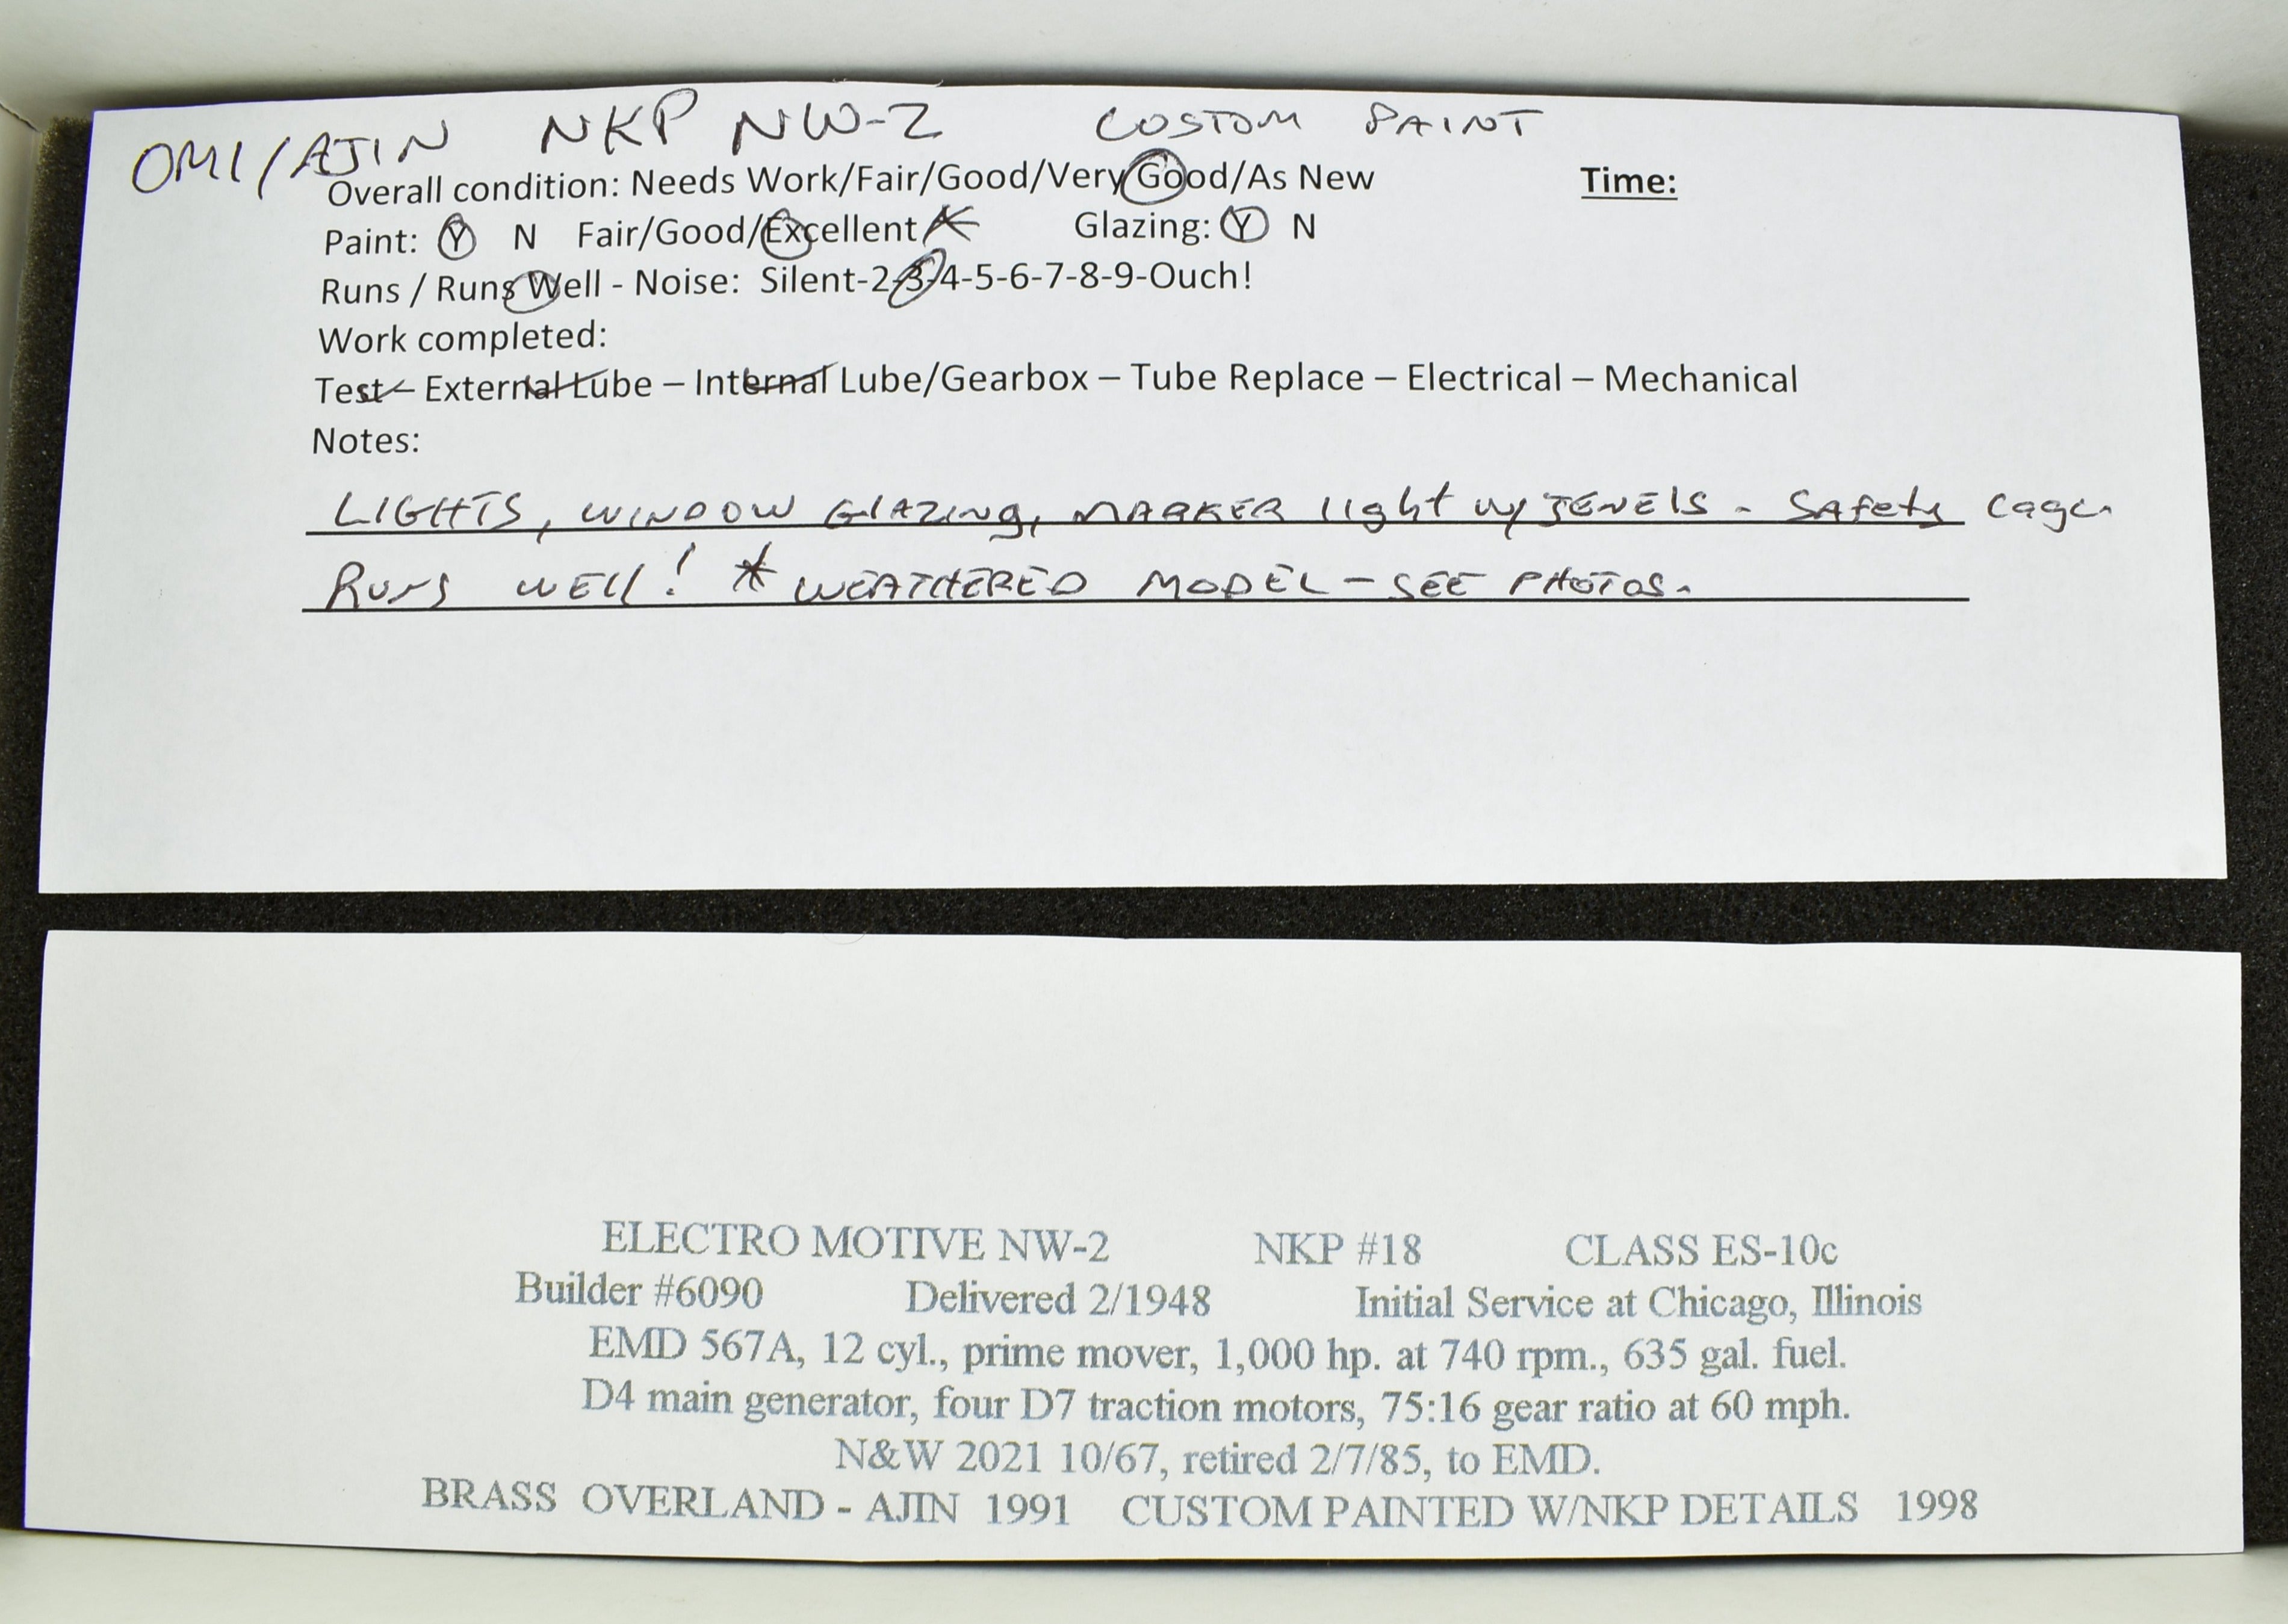 OMI/AJIN NKP NW-2 CUSTOM PAINT
Overall condition: Needs Work/Fair/Good/Very Good/As New Time:
Paint: Y N Fair/Good/Excellent * Glazing: Y N
Runs / Runs Well - Noise: Silent-2-3-4-5-6-7-8-9-Ouch!
Work completed:
Test – External Lube – Internal Lube/Gearbox – Tube Replace – Electrical – Mechanical
Notes:
LIGHTS, WINDOW GLAZING, MARKER light w/ JEWELS - SAfety Cage
RUNS WELL! * WEATHERED MODEL - SEE PHOTOS.
ELECTRO MOTIVE NW-2 NKP #18 CLASS ES-10c
Builder #6090 Delivered 2/1948 Initial Service at Chicago, Illinois
EMD 567A, 12 cyl., prime mover, 1,000 hp. at 740 rpm., 635 gal. fuel.
D4 main generator, four D7 traction motors, 75:16 gear ratio at 60 mph.
N&W 2021 10/67, retired 2/7/85, to EMD.
BRASS OVERLAND - AJIN 1991 CUSTOM PAINTED W/NKP DETAILS 1998